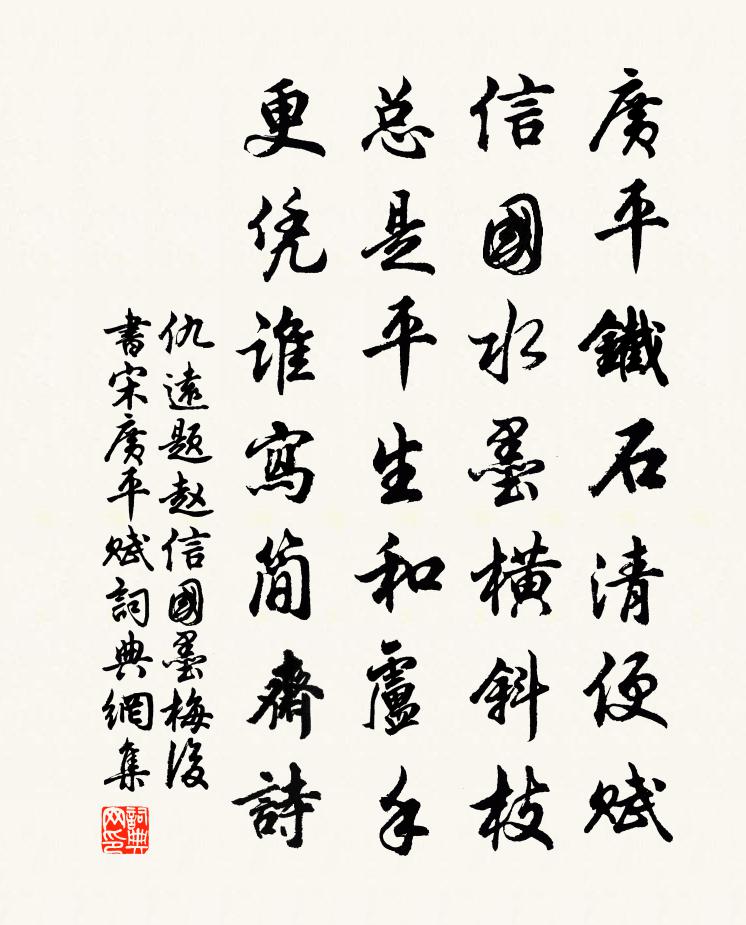 廣平鐵石清便賦
信國水墨橫斜枝
总是平生和盧手
更凭谁寫简齋詩
仇遠题赵信國墨梅後
書宋廣平赋詞典網集
詞典
网印